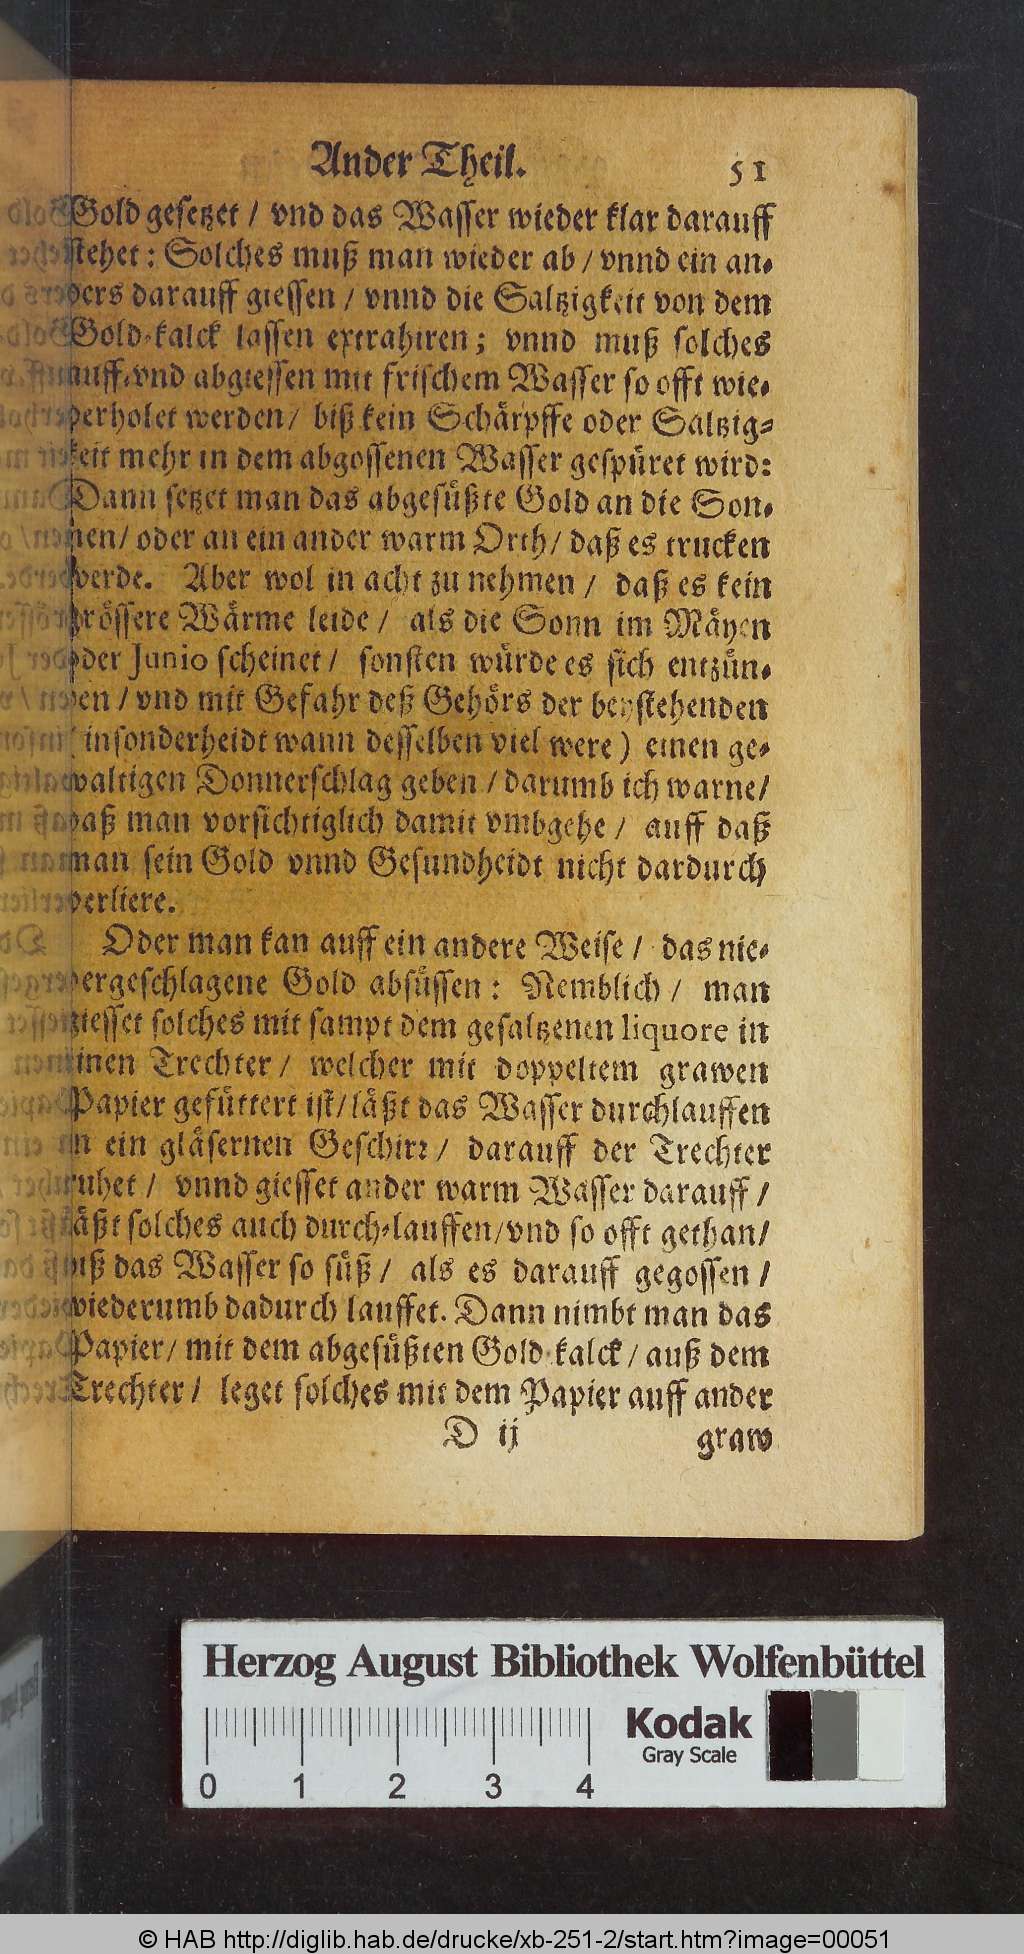 Ander Theil. 51
Gold gesetzet / vnd das Wasser wieder klar darauff
stehet: Solches muß man wieder ab / vnnd ein an-
ders darauff giessen / vnnd die Saltzigkeit von dem
Gold-kalck lassen extrahiren; vnnd muß solches
auff-vnd abgiessen mit frischem Wasser so offt wie-
derholet werden / biß kein Schärpffe oder Saltzig-
keit mehr in dem abgossenen Wasser gespüret wird:
Dann setzet man das abgesüßte Gold an die Son-
nen / oder an ein ander warm Orth / daß es trucken
werde. Aber wol in acht zu nehmen / daß es kein
grössere Wärme leide / als die Sonn im Mäyen
oder Junio scheinet / sonsten würde es sich entzün-
den / vnd mit Gefahr deß Gehörs der beystehenden
(insonderheidt wann desselben viel were) einen ge-
waltigen Donnerschlag geben / darumb ich warne /
daß man vorsichtiglich damit vmbgehe / auff daß
man sein Gold vnnd Gesundheidt nicht dardurch
verliere.
Oder man kan auff ein andere Weise / das nie-
dergeschlagene Gold absüssen: Nemblich / man
giesset solches mit sampt dem gesaltzenen liquore in
einen Trechter / welcher mit doppeltem grawen
Papier gefüttert ist / läßt das Wasser durchlauffen
in ein gläsernen Geschirr / darauff der Trechter
ruhet / vnnd giesset ander warm Wasser darauff /
läßt solches auch durch-lauffen / vnd so offt gethan /
biß das Wasser so süß / als es darauff gegossen /
wiederumb dadurch lauffet. Dann nimbt man das
Papier / mit dem abgesüßten Gold-kalck / auß dem
Trechter / leget solches mit dem Papier auff ander
D ij graw
Herzog August Bibliothek Wolfenbüttel
Kodak
Gray Scale
0 1 2 3 4
© HAB http://diglib.hab.de/drucke/xb-251-2/start.htm?image=00051